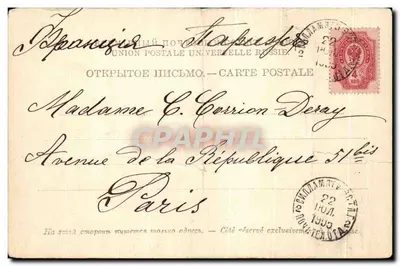 Франція Парижъ
UNION POSTALE UNIVERSELLE RUSSIE
ОТКРЫТОЕ ПИСЬМО. — CARTE POSTALE
Madame C. Corrion Deray
Avenue de la République 51 bis
Paris
22
1905
CPAPHIL
На этой сторонѣ пишется только адресъ. — Côté réservé exclusivement